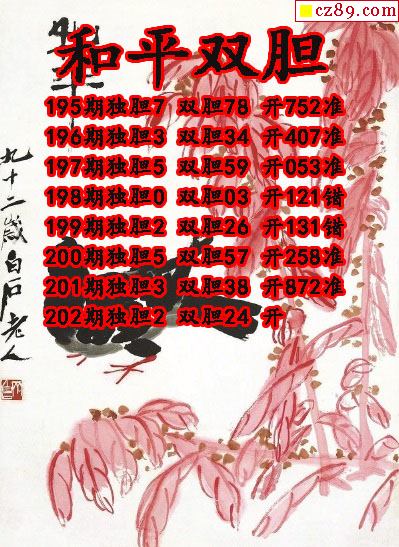 cz89.com
和平双胆
195期独胆7 双胆78 开752准
196期独胆3 双胆34 开407准
197期独胆5 双胆59 开053准
198期独胆0 双胆03 开121错
199期独胆2 双胆26 开131错
200期独胆5 双胆57 开258准
201期独胆3 双胆38 开872准
202期独胆2 双胆24 开
九十二岁白石老人